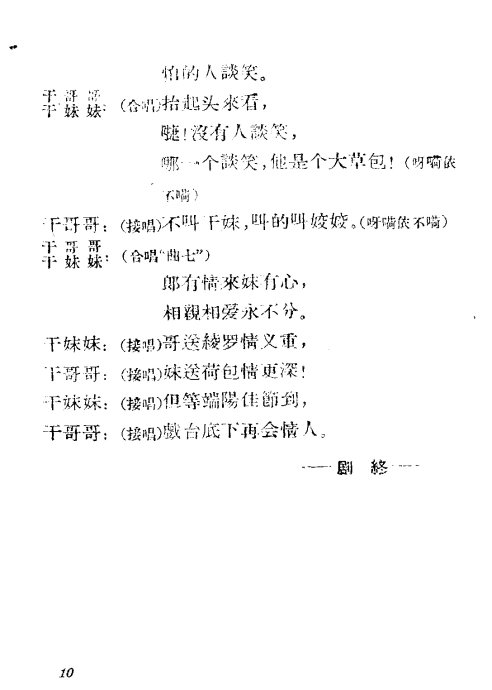 怕的人談笑。
干哥哥
干妹妹：(合唱)抬起头來看，
嗹!沒有人談笑，
哪一个談笑,他是个大草包!（呀嗬依
不嗬）
干哥哥：(接唱)不叫干妹,叫的叫姣姣。(呀嗬依不嗬)
干哥哥
干妹妹：(合唱“曲七”)
郞有情來妹有心，
相親相爱永不分。
干妹妹：(接唱)哥送綾罗情义重，
干哥哥：(接唱)妹送荷包情更深!
干妹妹：(接唱)但等端陽佳節到，
干哥哥：(接唱)戲台底下再会情人。
——剧 終——
10